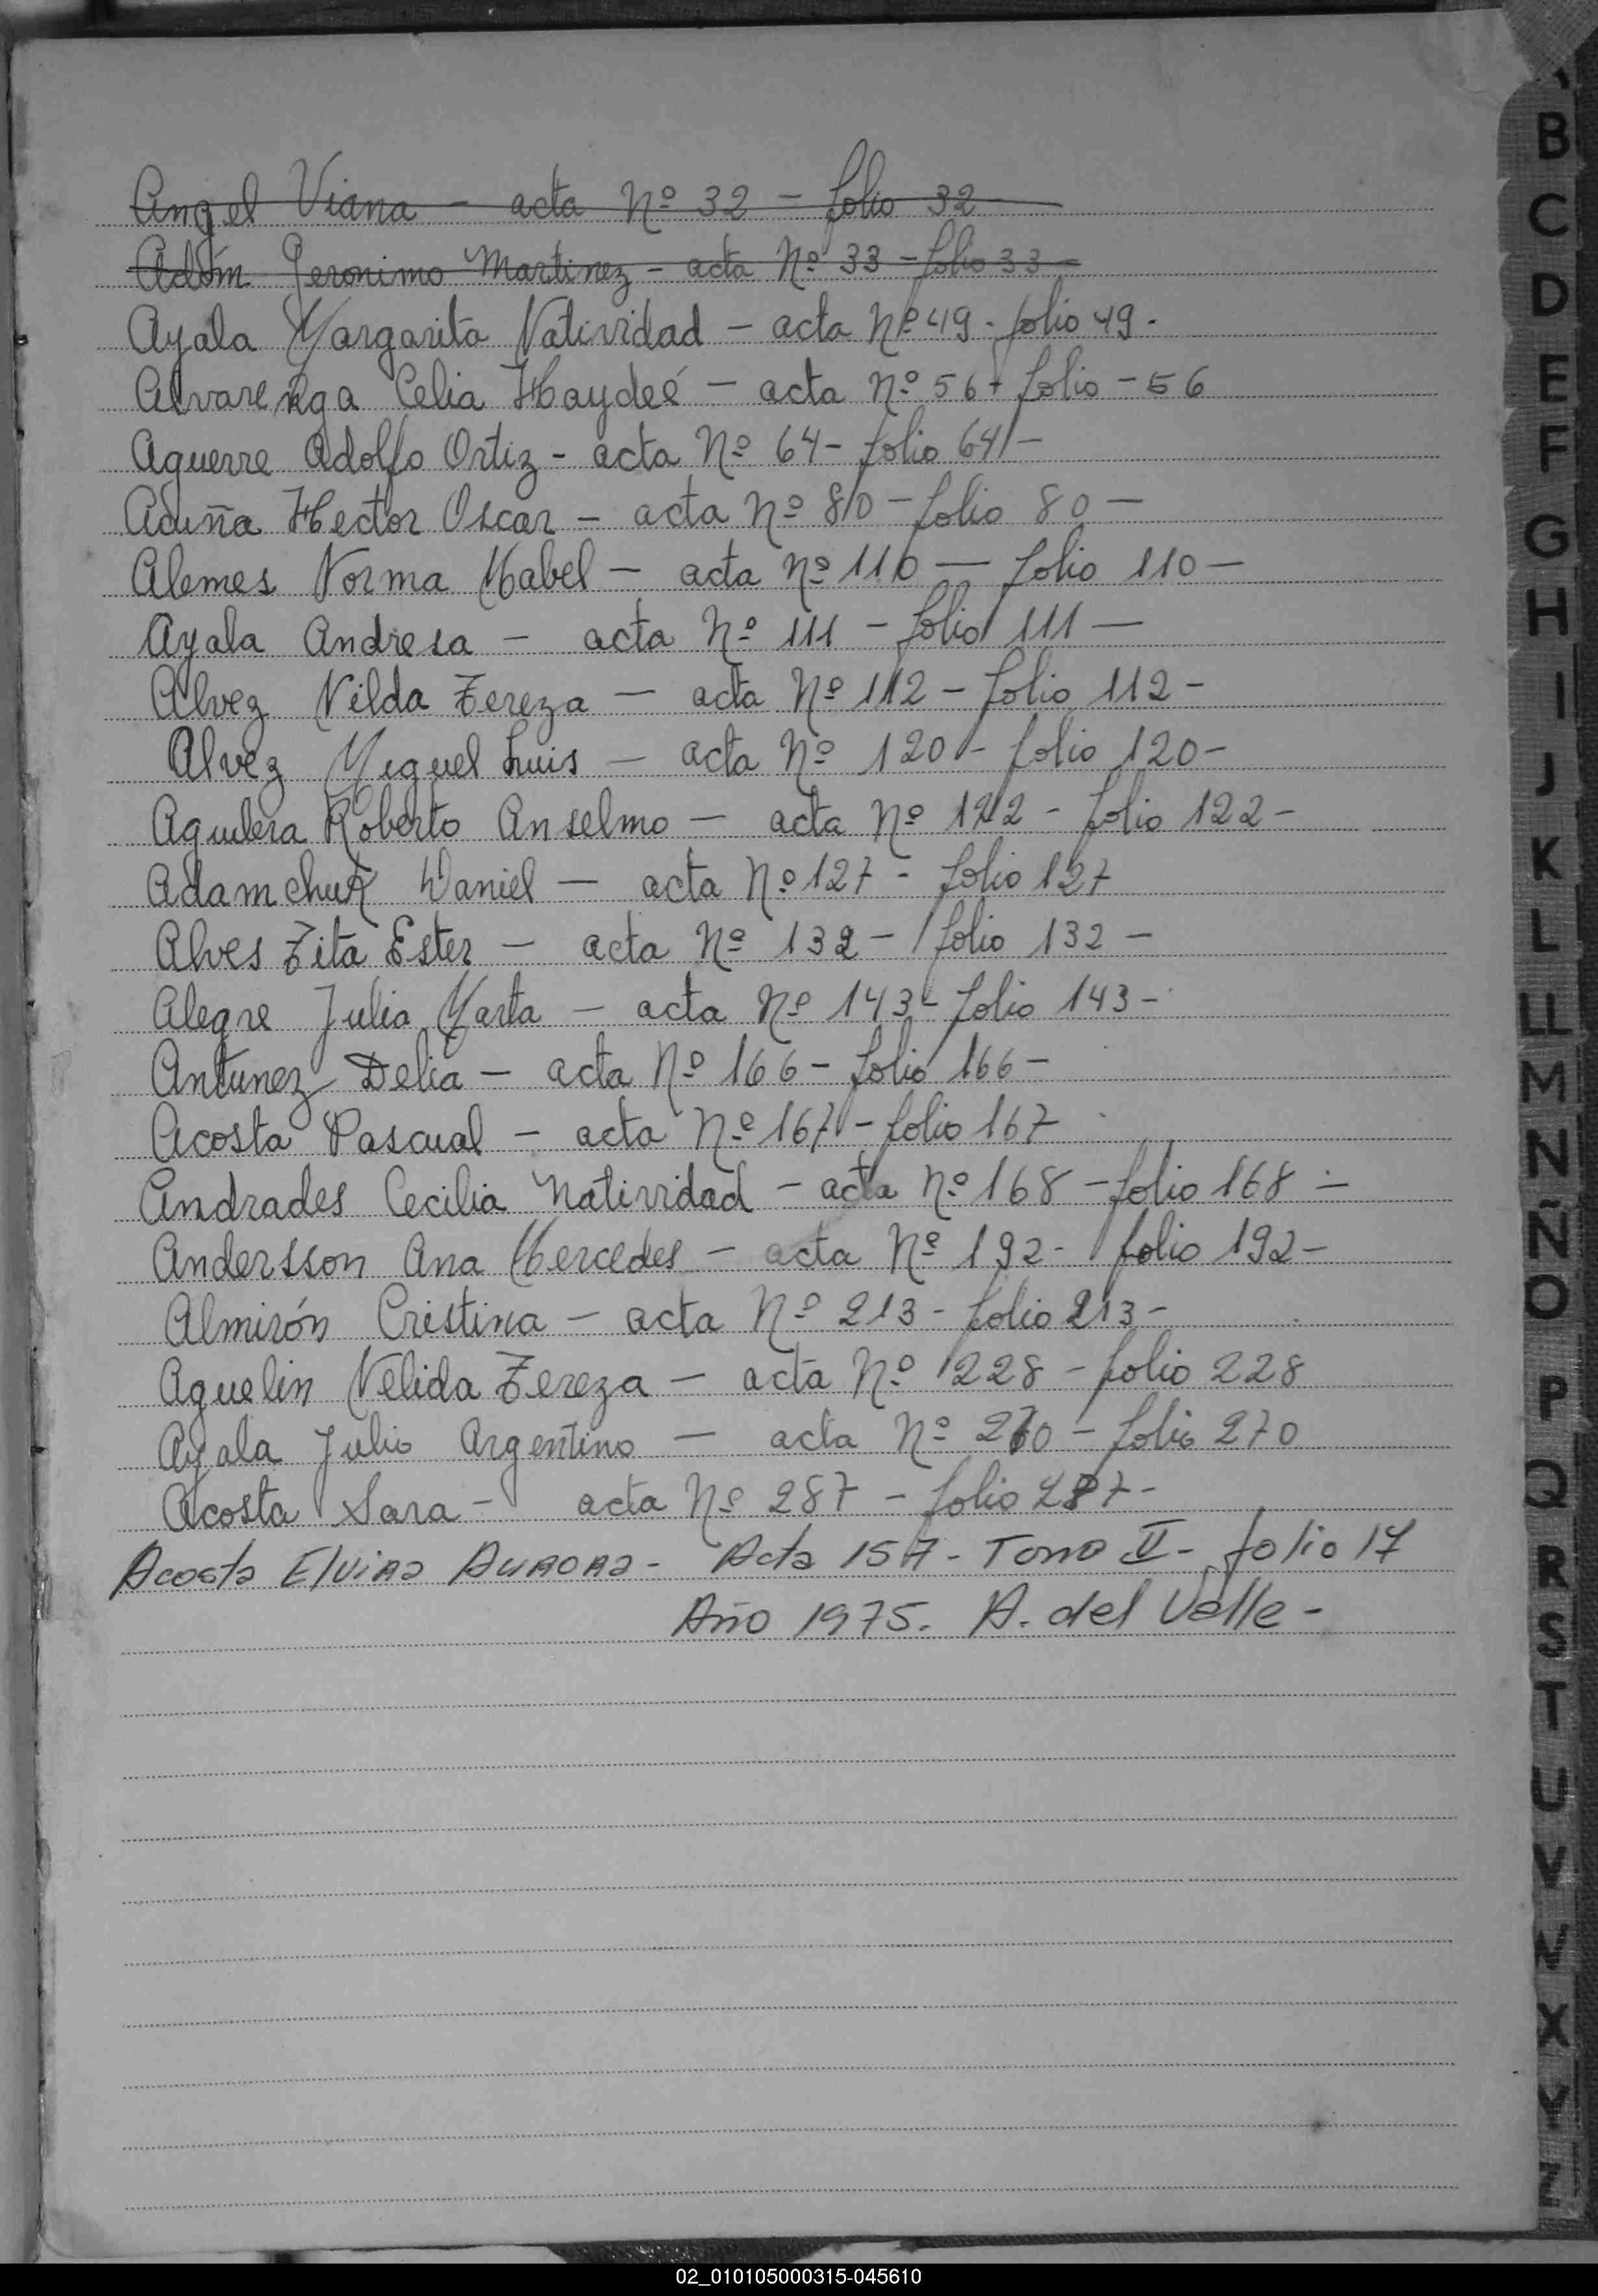 Angel Viana - acta Nº 32 - folio 32
Adám Jeronimo Martinez - acta Nº 33 - folio 33 -
Ayala Margarita Natividad - acta Nº 49 - folio 49 -
Alvarenga Celia Haydeé - acta Nº 56 - folio - 56
Aguerre Adolfo Ortiz - acta Nº 64 - folio 64 -
Acuña Hector Oscar - acta Nº 80 - folio 80 -
Alemes Norma Mabel - acta Nº 110 - folio 110 -
Ayala Andresa - acta Nº 111 - folio 111 -
Alvez Nilda Tereza - acta Nº 112 - folio 112 -
Alvez Miguel Luis - acta Nº 120 - folio 120 -
Aguilera Roberto Anselmo - acta Nº 122 - folio 122 -
Adamchuk Daniel - acta Nº 127 - folio 127
Alves Zita Ester - acta Nº 132 - folio 132 -
Alegre Julia Marta - acta Nº 143 - folio 143 -
Antunez Delia - acta Nº 166 - folio 166 -
Acosta Pascual - acta Nº 167 - folio 167
Andrades Cecilia Natividad - acta Nº 168 - folio 168 -
Andersson Ana Mercedes - acta Nº 192 - folio 192 -
Almirón Cristina - acta Nº 213 - folio 213 -
Aguelin Nelida Tereza - acta Nº 228 - folio 228
Ayala Julio Argentino - acta Nº 270 - folio 270
Acosta Sara - acta Nº 287 - folio 287 -
Acosta Elvira Aurora - Acta 157 - Tomo II - folio 17
Año 1975. A. del Valle -
B
C
D
E
F
G
H
I
J
K
L
LL
M
N
Ñ
O
P
Q
R
S
T
U
V
X
Y
Z
02_010105000315-045610